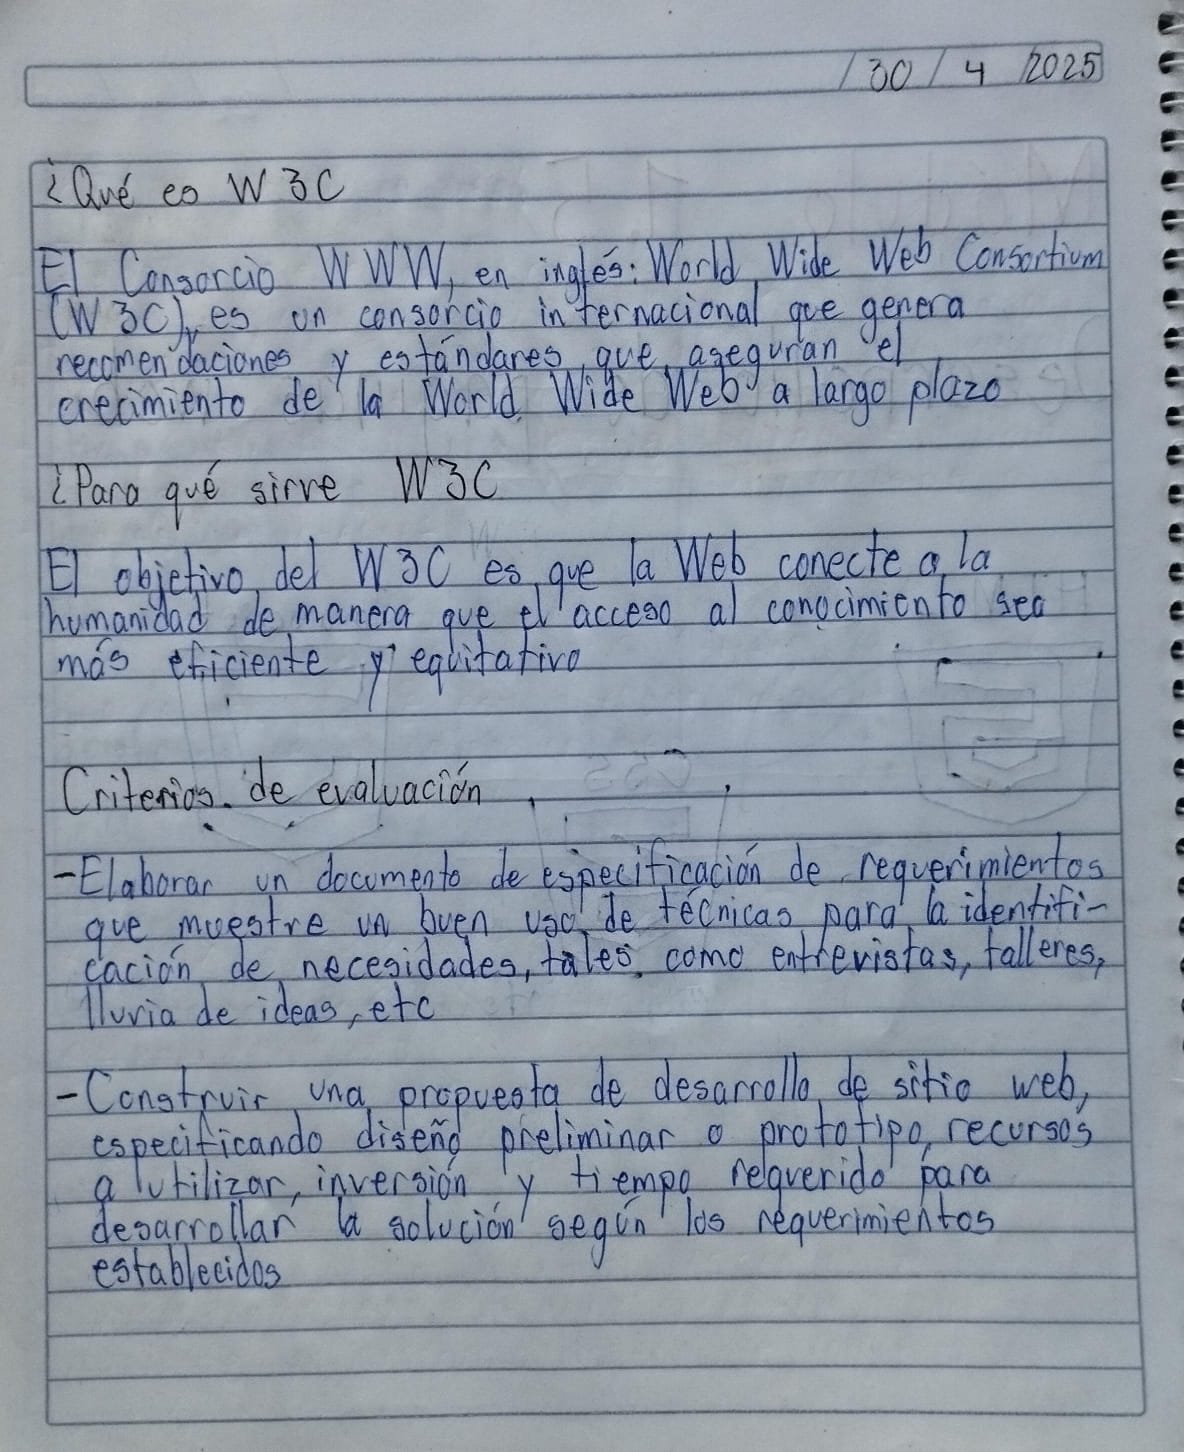 /30/ 4 /2025
¿Qué es W3C
El Consorcio WWW, en inglés: World Wide Web Consortium
(W3C), es un consorcio internacional que genera
recomendaciones y estándares que aseguran el
crecimiento de la World Wide Web a largo plazo
¿Para qué sirve W3C
El objetivo del W3C es que la Web conecte a la
humanidad de manera que el acceso al conocimiento sea
más eficiente y equitativo
Criterios de evaluación
-Elaborar un documento de especificación de requerimientos
que muestre un buen uso de técnicas para la identifi-
cación de necesidades, tales como entrevistas, talleres,
lluvia de ideas, etc
-Construir una propuesta de desarrollo de sitio web,
especificando diseño preliminar o prototipo, recursos
a utilizar, inversión y tiempo requerido para
desarrollar la solución según los requerimientos
establecidos